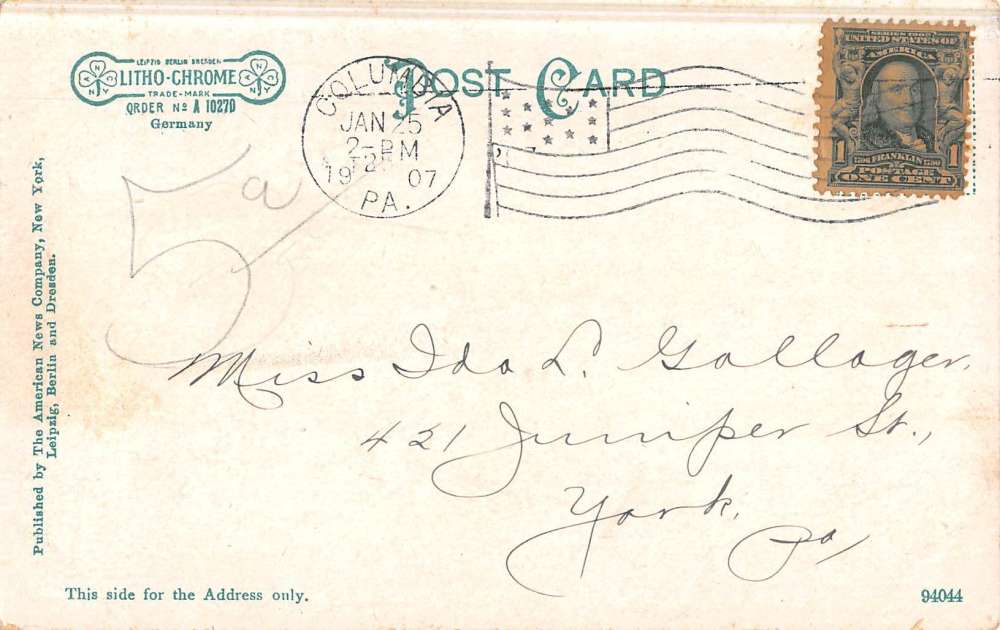 LEIPZIG BERLIN DRESDEN
LITHO-CHROME
TRADE-MARK
ORDER No A 10270
Germany
POST CARD
COLUMBIA
JAN 25
2-PM
1907
PA.
SERIES 1902
UNITED STATES OF
AMERICA
1 FRANKLIN 1
POSTAGE
ONE CENT
5a
Miss Ida L. Gallager,
421 Juniper St.,
York,
Pa
Published by The American News Company, New York,
Leipzig, Berlin and Dresden.
This side for the Address only.
94044